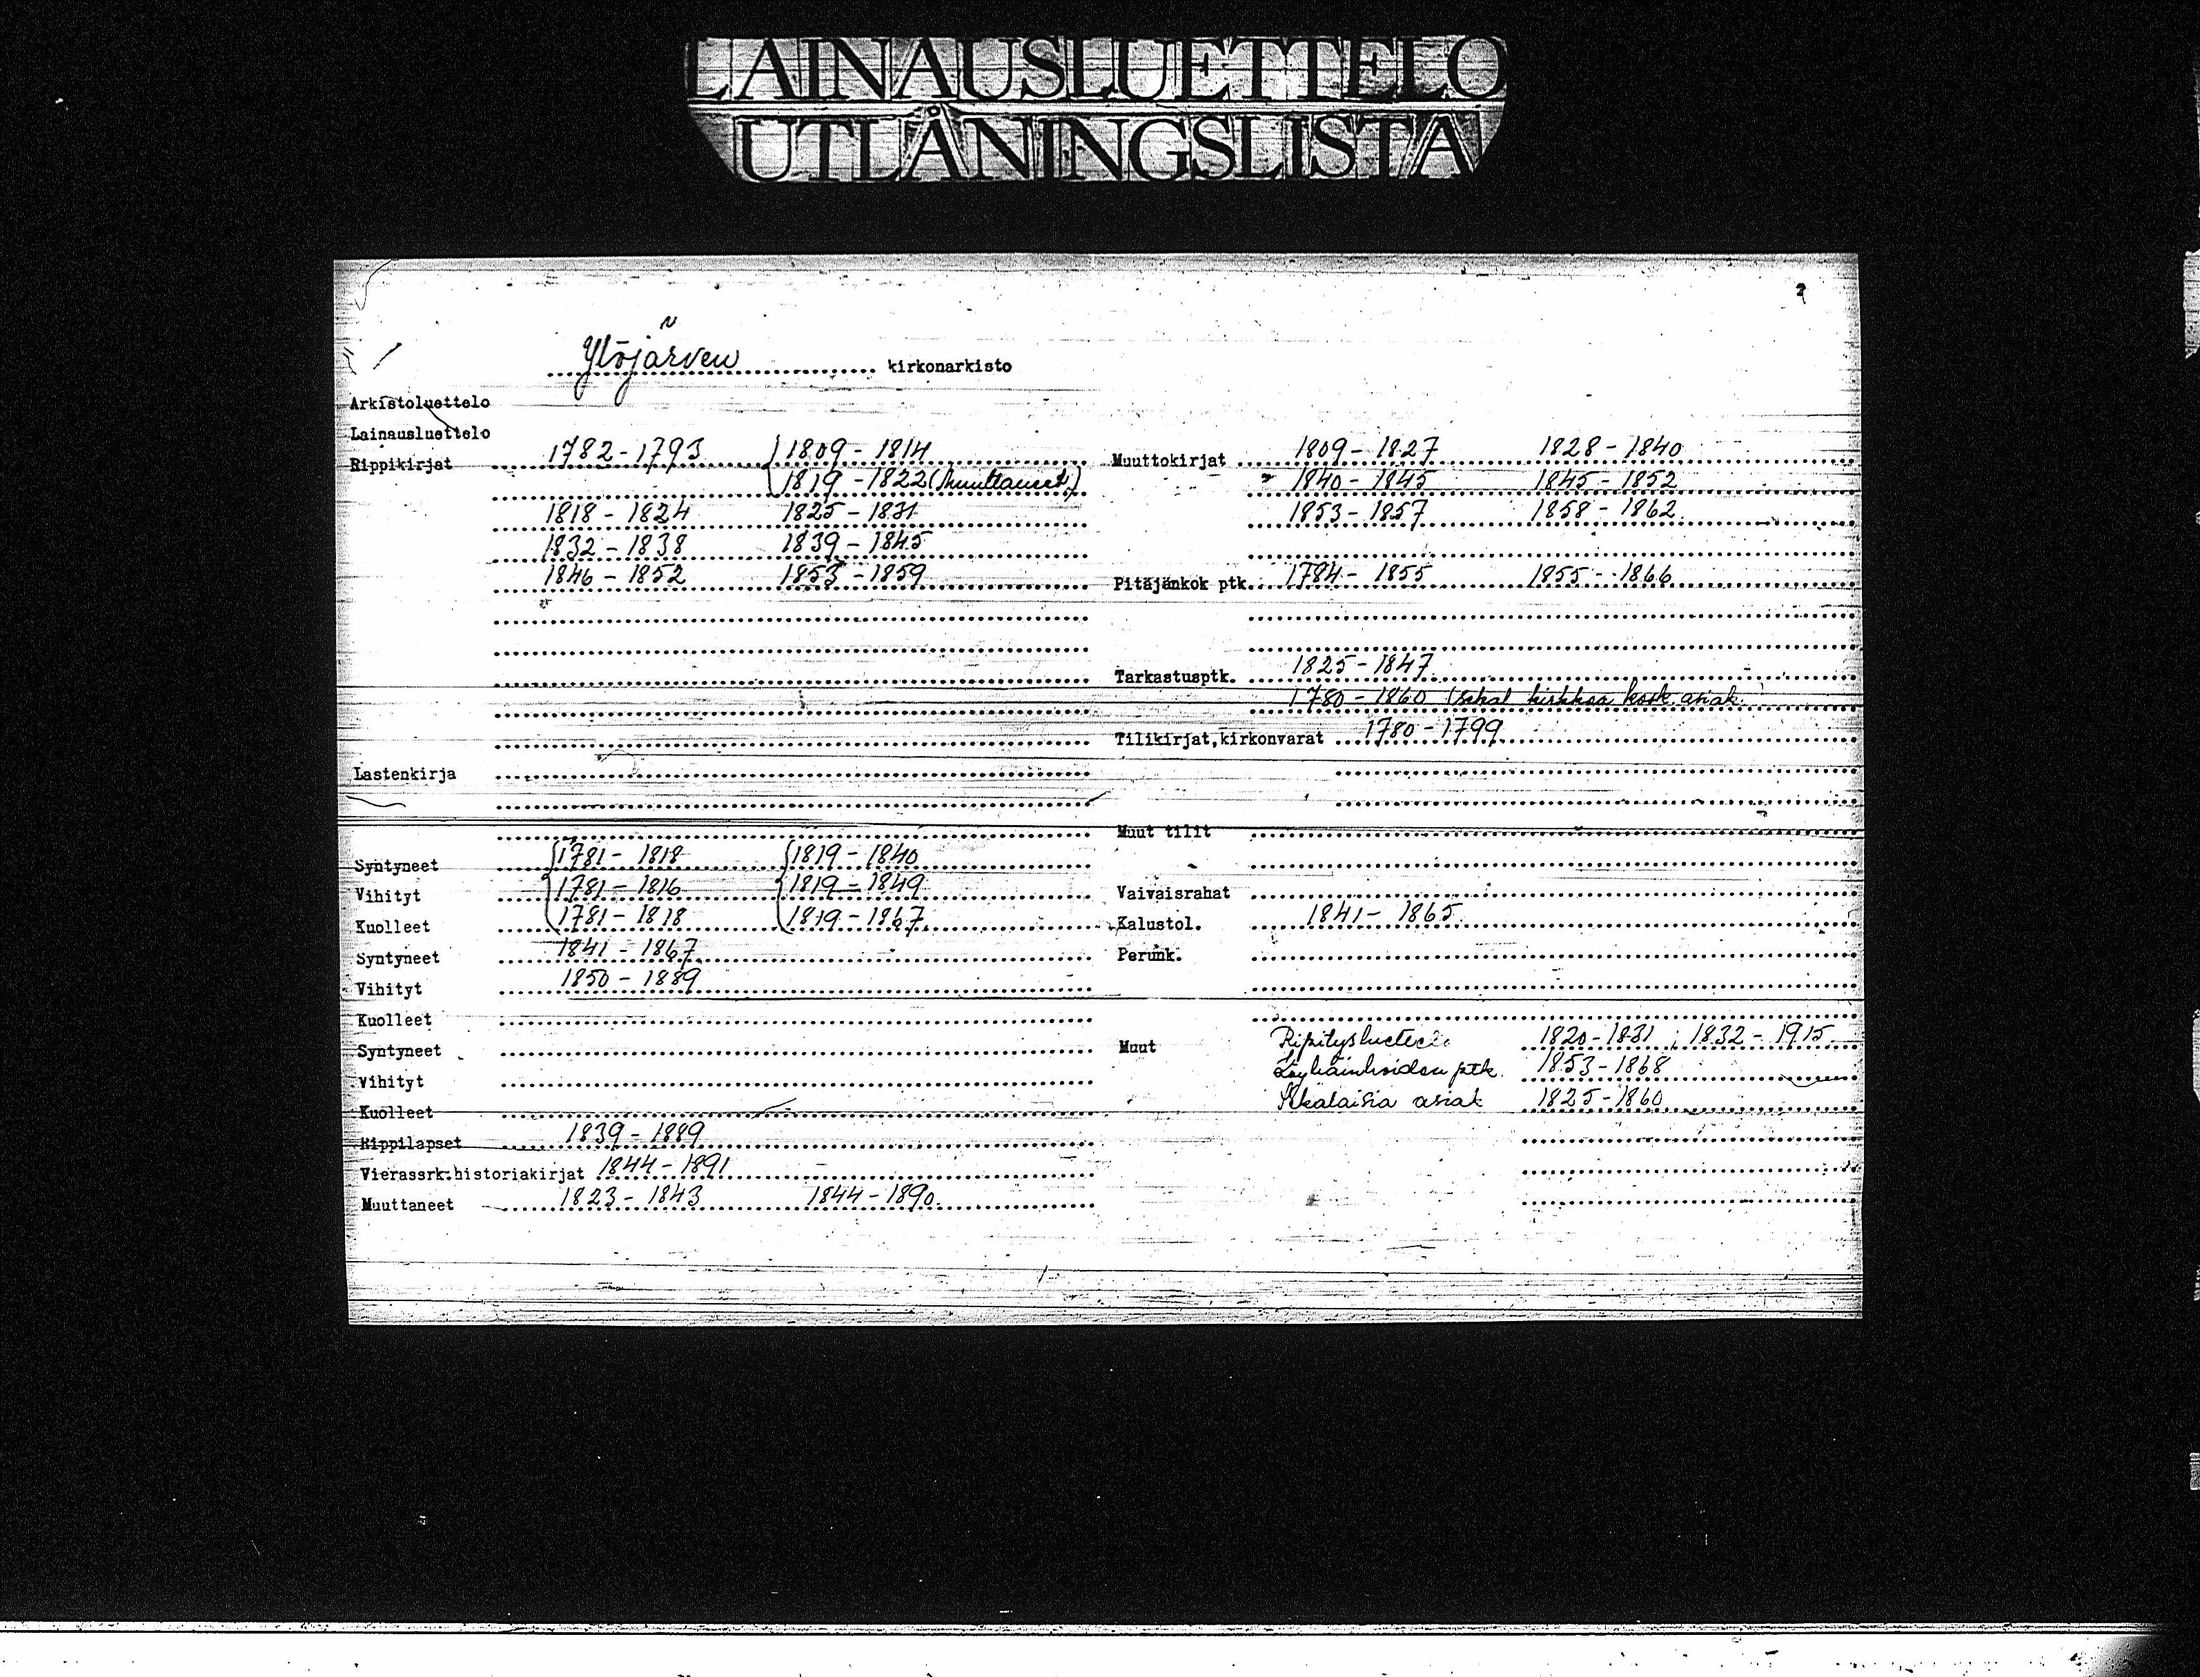 LAINAUSLUETTELO
UTLÅNINGSLISTA
2
Ylöjärven kirkonarkisto
Arkistoluettelo
Lainausluettelo
Rippikirjat 1782-1793 1809-1814
1819-1822 (Muuttaneet)
1818-1824 1825-1831
1832-1838 1839-1845
1846-1852 1853-1859
Lastenkirja
Syntyneet 1781-1818 1819-1840
Vihityt 1781-1816 1819-1849
Kuolleet 1781-1818 1819-1867
Syntyneet 1841-1867
Vihityt 1850-1889
Kuolleet
Syntyneet
Vihityt
Kuolleet
Rippilapset 1839-1889
Vierassrk.historiakirjat 1844-1891
Muuttaneet 1823-1843 1844-1890
Muuttokirjat 1809-1827 1828-1840
1840-1845 1845-1852
1853-1857 1858-1862
Pitäjänkok ptk. 1784-1855 1855-1866
Tarkastusptk. 1825-1847
1780-1860 kirkkoa kosk. asiak.
Tilikirjat,kirkonvarat 1780-1799
Muut tilit
Vaivaisrahat
Kalustol. 1841-1865
Perunk.
Muut Ripitysluettelo 1820-1831; 1832-1915
Köyhäinhoidon ptk. 1853-1868
Sekalaisia asiak 1825-1860